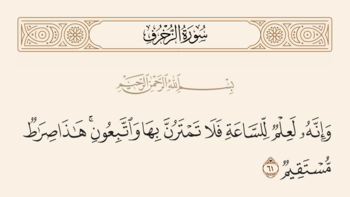 سُورَةُ الزُّخْرُفِ
بِسْمِ اللَّهِ الرَّحْمَٰنِ الرَّحِيمِ
وَإِنَّهُۥ لَعِلْمٌ لِّلسَّاعَةِ فَلَا تَمْتَرُنَّ بِهَا وَٱتَّبِعُونِ ۚ هَٰذَا صِرَٰطٌ
مُّسْتَقِيمٌ ٦١